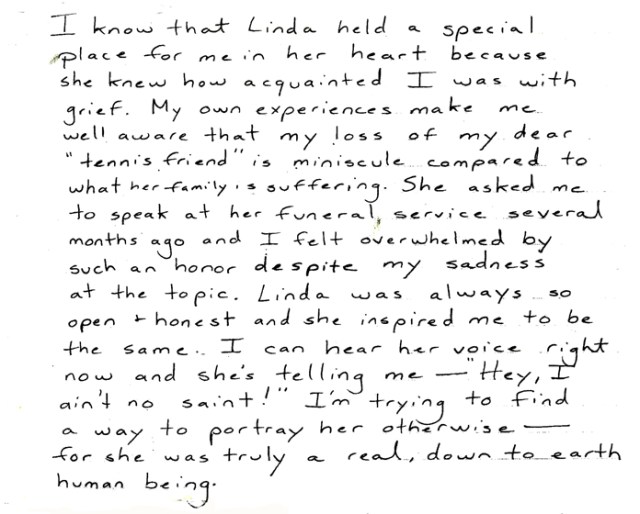 I know that Linda held a special
place for me in her heart because
she knew how acquainted I was with
grief. My own experiences make me
well aware that my loss of my dear
"tennis friend" is miniscule compared to
what her family is suffering. She asked me
to speak at her funeral, service several
months ago and I felt overwhelmed by
such an honor despite my sadness
at the topic. Linda was always so
open + honest and she inspired me to be
the same. I can hear her voice right
now and she's telling me — "Hey, I
ain't no saint!" I'm trying to find
a way to portray her otherwise —
for she was truly a real, down to earth
human being.